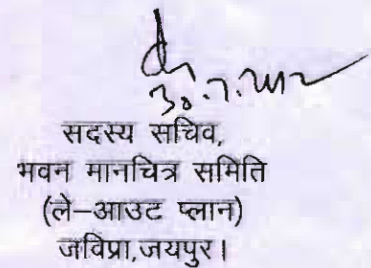 30.7.2012
सदस्य सचिव,
भवन मानचित्र समिति
(ले–आउट प्लान)
जविप्रा,जयपुर।